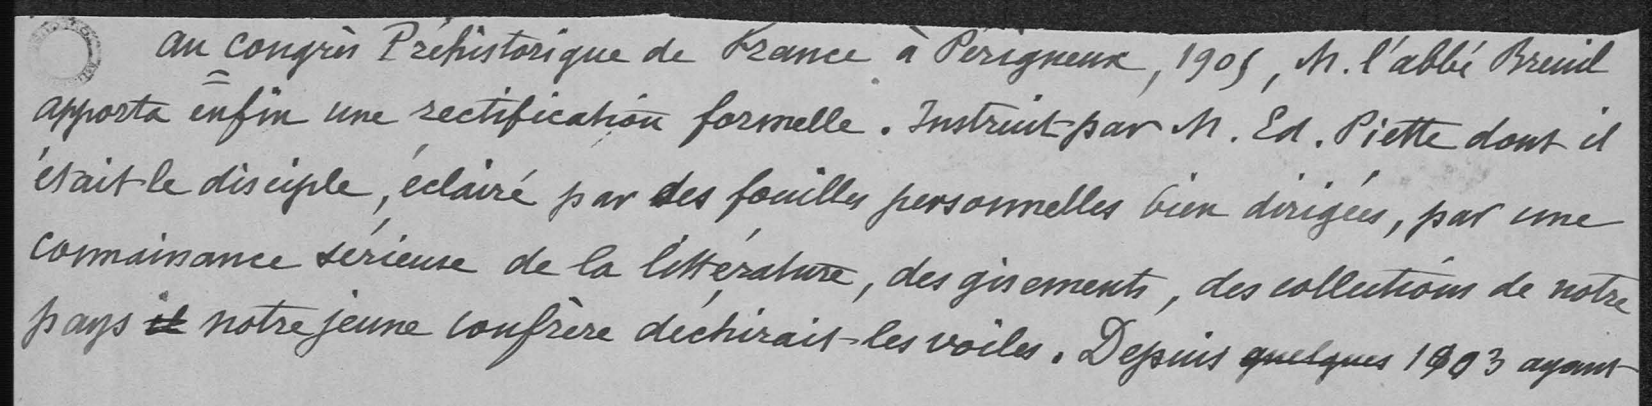 au congrès Préhistorique de France à Périgueux, 1905, M. l'abbé Breuil
apporta enfin une rectification formelle. Instruit par M. Ed. Piette dont il
était le disciple, éclairé par des fouilles personnelles bien dirigées, par une
connaissance sérieuse de la littérature, des gisements, des collections de notre
pays il notre jeune confrère déchirait les voiles. Depuis quelques 1903 ayant